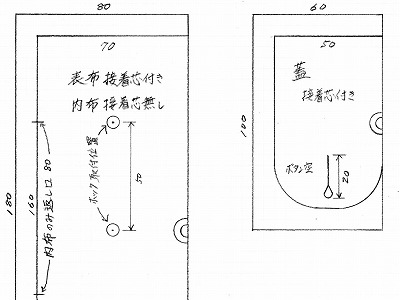 80
70
表布接着芯付き
内布接着芯無し
ホック取付位置
50
180
160
内布のみ返し口 80
60
50
蓋
接着芯付き
100
ボタン空
20